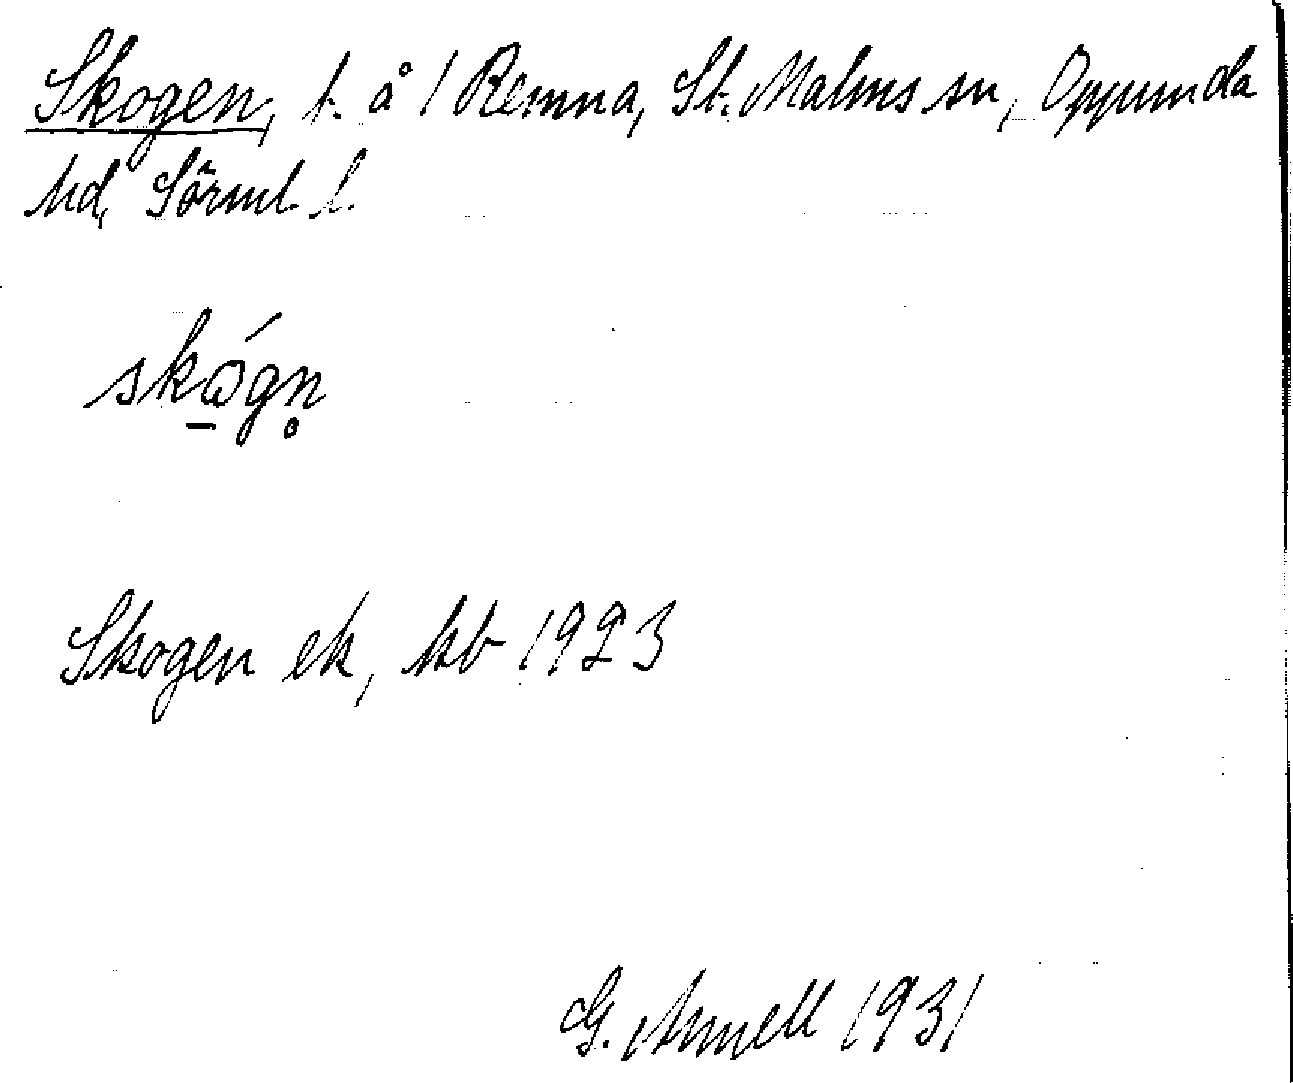 Skogen, t. å 1 Remna, St. Malms sn, Oppunda
hd, Sörml. l.
skógn̥
Skogen ek, kb 1923
G. Armell 1931